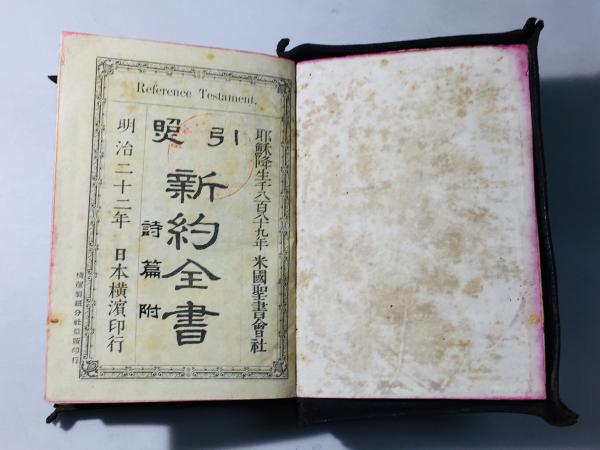 Reference Testament.
耶穌降生千八百八十九年 米國聖書會社
引照
新約全書
詩篇附
明治二十二年 日本橫濱印行
橫濱製紙分社活版印行